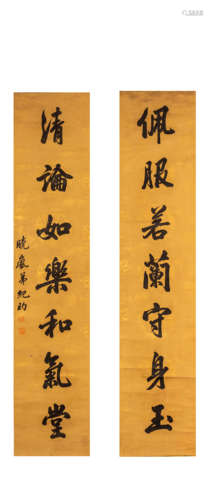 佩服若蘭守身玉
清論如樂和氣堂
曉嵐弟紀昀